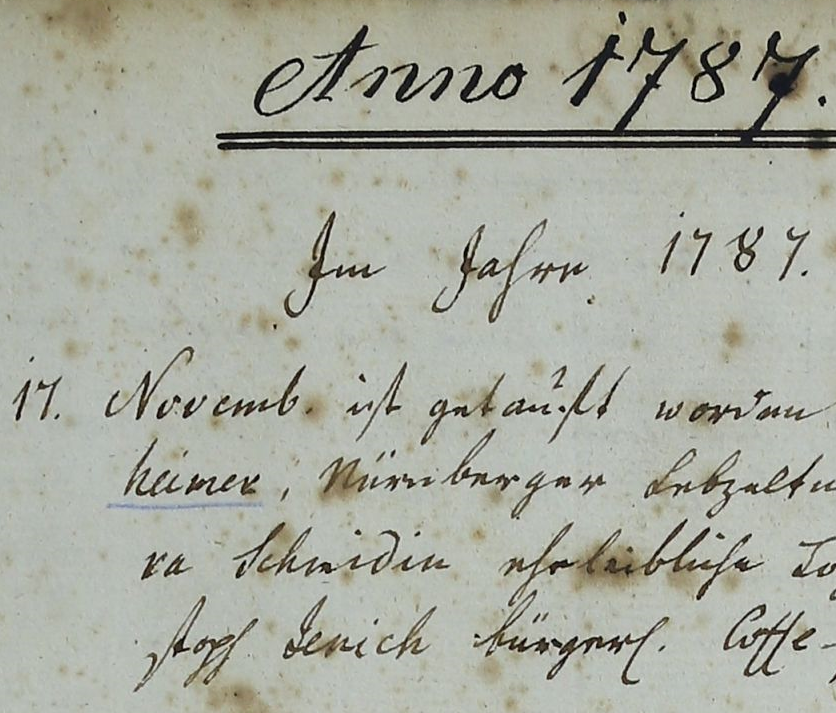 Anno 1787.
Im Jahre 1787.
17. Novemb. ist getauft worden
heimer, Nürnberger Lebzelt
ra Schmidin eheleibliche To
stoph Jenich bürgerl. Coffe-